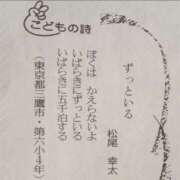 こどもの詩
ずっといる
松尾 幸太
ぼくは かえらないよ
いばらきにずっといる
いばらきに五千泊する
（東京都三鷹市・第六小4年）